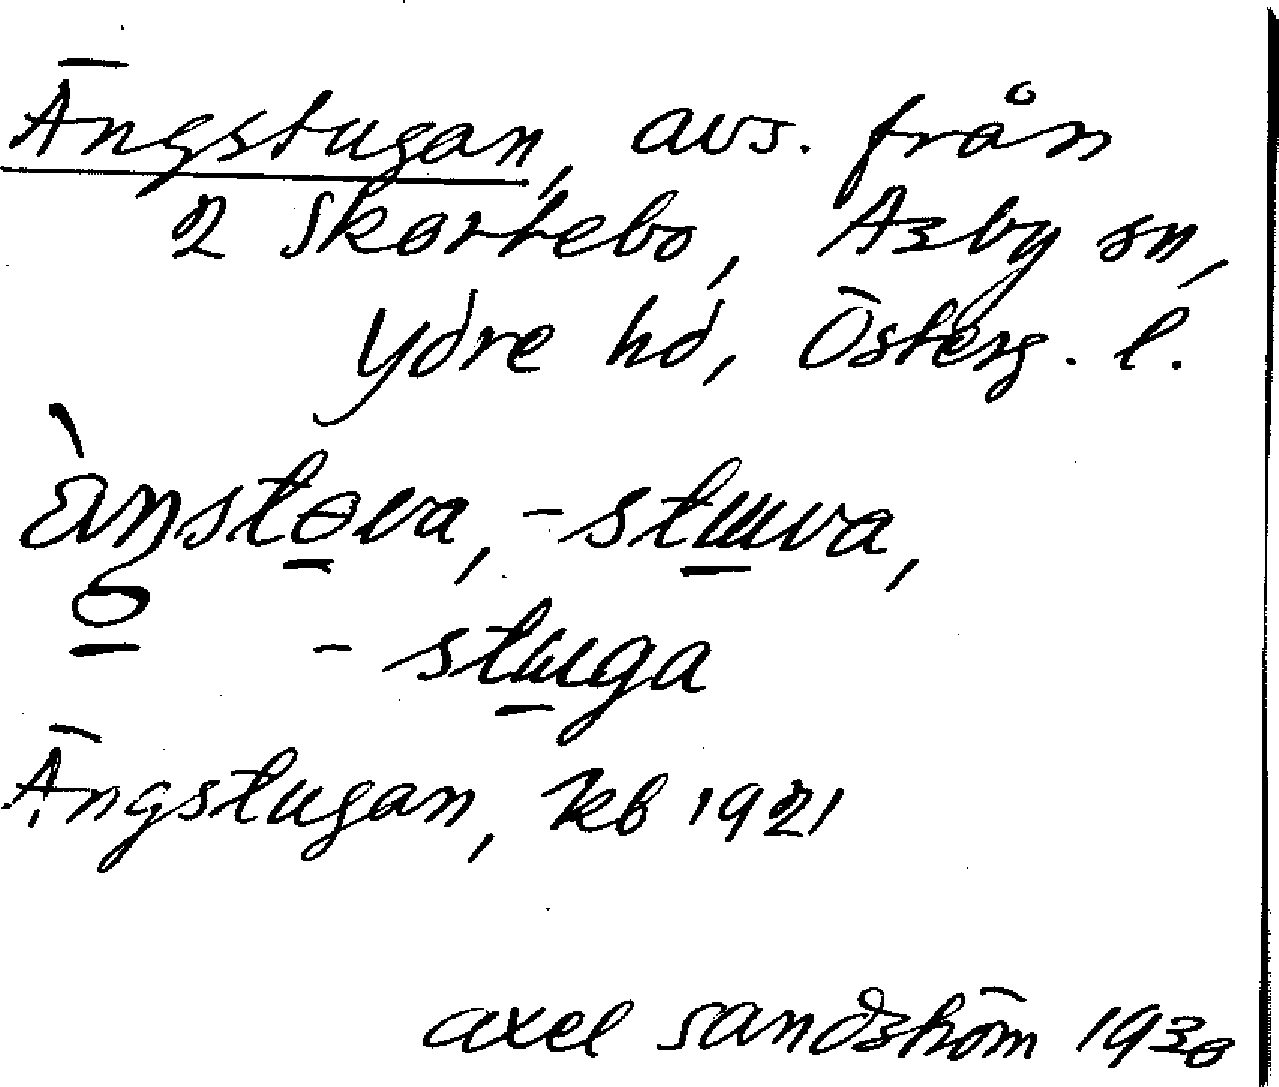 Ängstugan, avs. från
2 Skørtebo, Asby sn,
Ydre hd, Österg. l.
-stuga
Ängstugan, kb 1921
Axel Sandström 1930